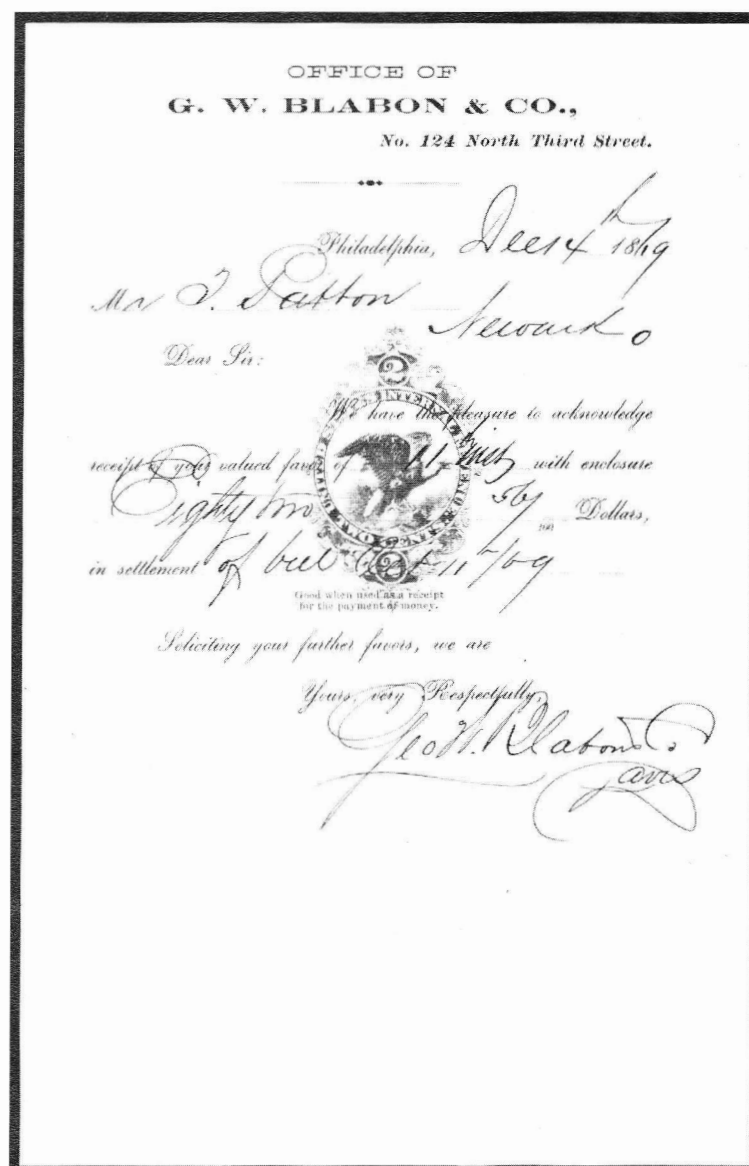 OFFICE OF
G. W. BLABON & CO.,
No. 124 North Third Street.
Philadelphia, Dec 14th 1869
Mr T. Patton
Newark O
Dear Sir:
2
We have the pleasure to acknowledge
receipt of your valued favor of 11th inst with enclosure
Eighty two 56/100 Dollars,
in settlement of bill Oct 11th/69
2
Good when used as a receipt
for the payment of money.
Soliciting your further favors, we are
Yours, very Respectfully,
Geo W. Blabon & Co